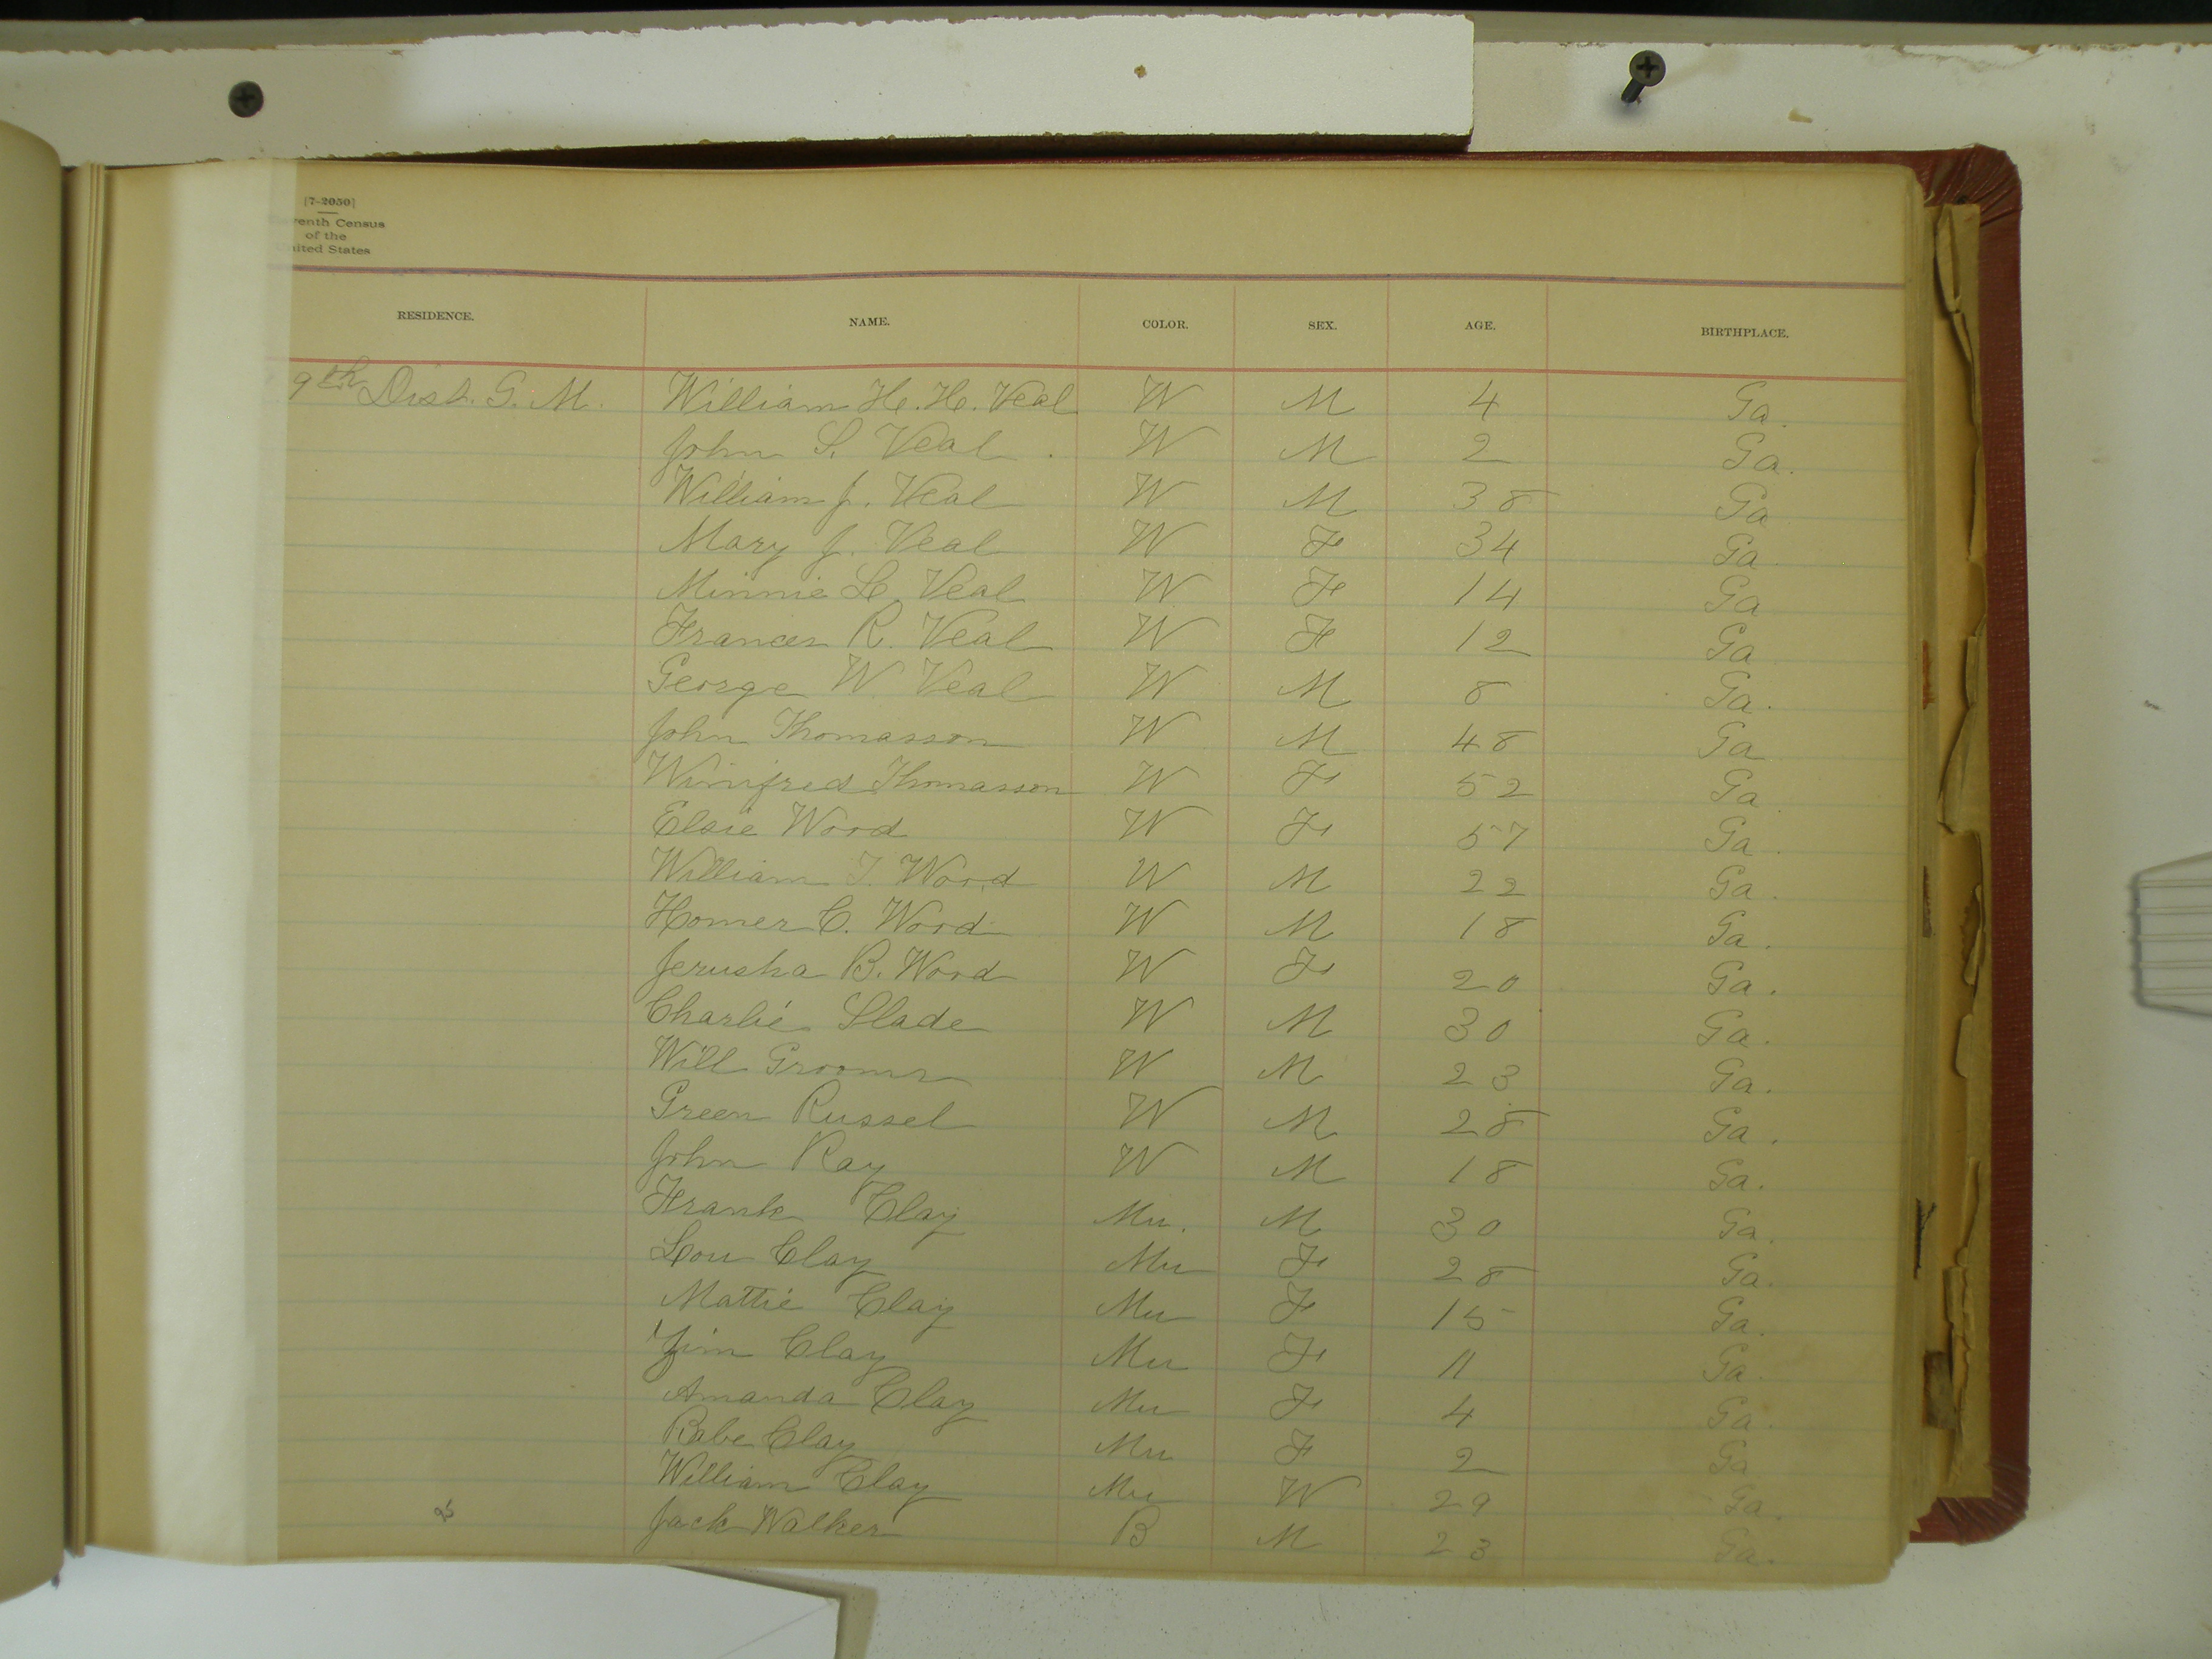 [7-2050]
venth Census
of the
nited States
RESIDENCE. NAME. COLOR. SEX. AGE. BIRTHPLACE.
9th Dist. G. M. William H. H. Veal W M 4 Ga.
John S. Veal W M 2 Ga.
William J. Veal W M 38 Ga
Mary J. Veal W F 34 Ga.
Minnie L. Veal W F 14 Ga
Frances R. Veal W F 12 Ga
George W. Veal W M 8 Ga.
John Thomasson W M 48 Ga
Winifred Thomasson W F 52 Ga.
Elsie Wood W F 57 Ga.
William T. Wood W M 22 Ga.
Homer C. Wood W M 18 Ga.
Jerusha B. Wood W F 20 Ga.
Charlie Slade W M 30 Ga.
Will Grooms W M 23 Ga.
Green Russel W M 28 Ga.
John Ray W M 18 Ga.
Frank Clay Mu. M 30 Ga.
Lou Clay Mu F 28 Ga.
Mattie Clay Mu F 15 Ga.
Jim Clay Mu F 11 Ga.
Amanda Clay Mu F 4 Ga.
Babe Clay Mu F 2 Ga
William Clay Mu W 29 Ga.
Jack Walker B M 23 Ga.